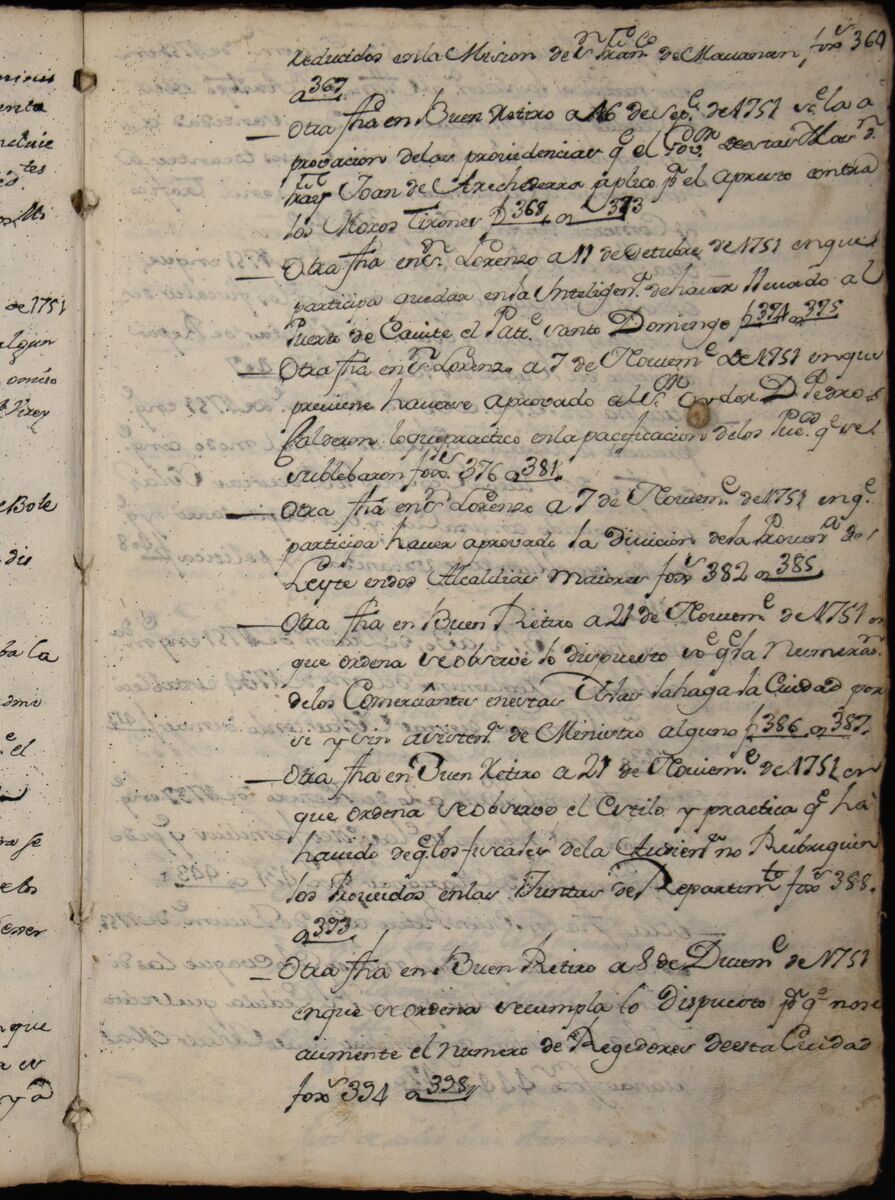 reducidos en la Mision de Sn. Franco. de Mauanan, foxs 360
a 367
Otra fha en Buen Retiro a 16 de Sepe. de 1751 sre. la a
provacion de las providencias qe el Govor. de estas Yslas Dn.
fray Joan de Arechederra aplico pa. el apresto contra
los Moros Tirones f 368, a 373
Otra fha en Sn. Lorenzo a 11 de Octubre de 1751 en que
participa quedar en la Inteliga. de haver llevado al
Puerto de Cavite el Pate. Santo Domingo f 374 a 375
Otra fha en Sn. Lorenzo a 7 de Novieme. de 1751 en que
previene haverse aprovado al Sor. Oydor Dn. Pedro
Calderon lo que practico en la pacificacion de los Pueos. qe se
sublebaron foxs. 376 a 381
Otra fha en Sn. Lorenzo a 7 de Noviem.e de 1751 en qe.
participa haver aprovado la Divicion de la Prova. de
Leyte en dos Alcaldias maiores foxs 382 a 385
Otra fha en Buen Retiro a 21 de Noviem.e de 1751 en
que ordena se observe lo dispuesto soe. qe la Numeran.
de los Comerciantes en estas Yslas la haga la Ciudad por
si y sin asistena. de Ministro alguno f 386 a 387.
Otra fha en Buen Retiro a 21 de Noviem.e de 1751 en
que ordena se observe el Estilo y practica qe há
havido de qe los fiscales de la Audiena. no Rubriquen
los Proveidos en las Juntas de Repartimto. foxs 388.
a 393
Otra fha en Buen Retiro a 8 de Diciem.e de 1751
en que se ordena se cumpla lo Dispuesto pa. qe. no se
aumente el numero de Regidores de esta Ciudad
foxs 394 a 398